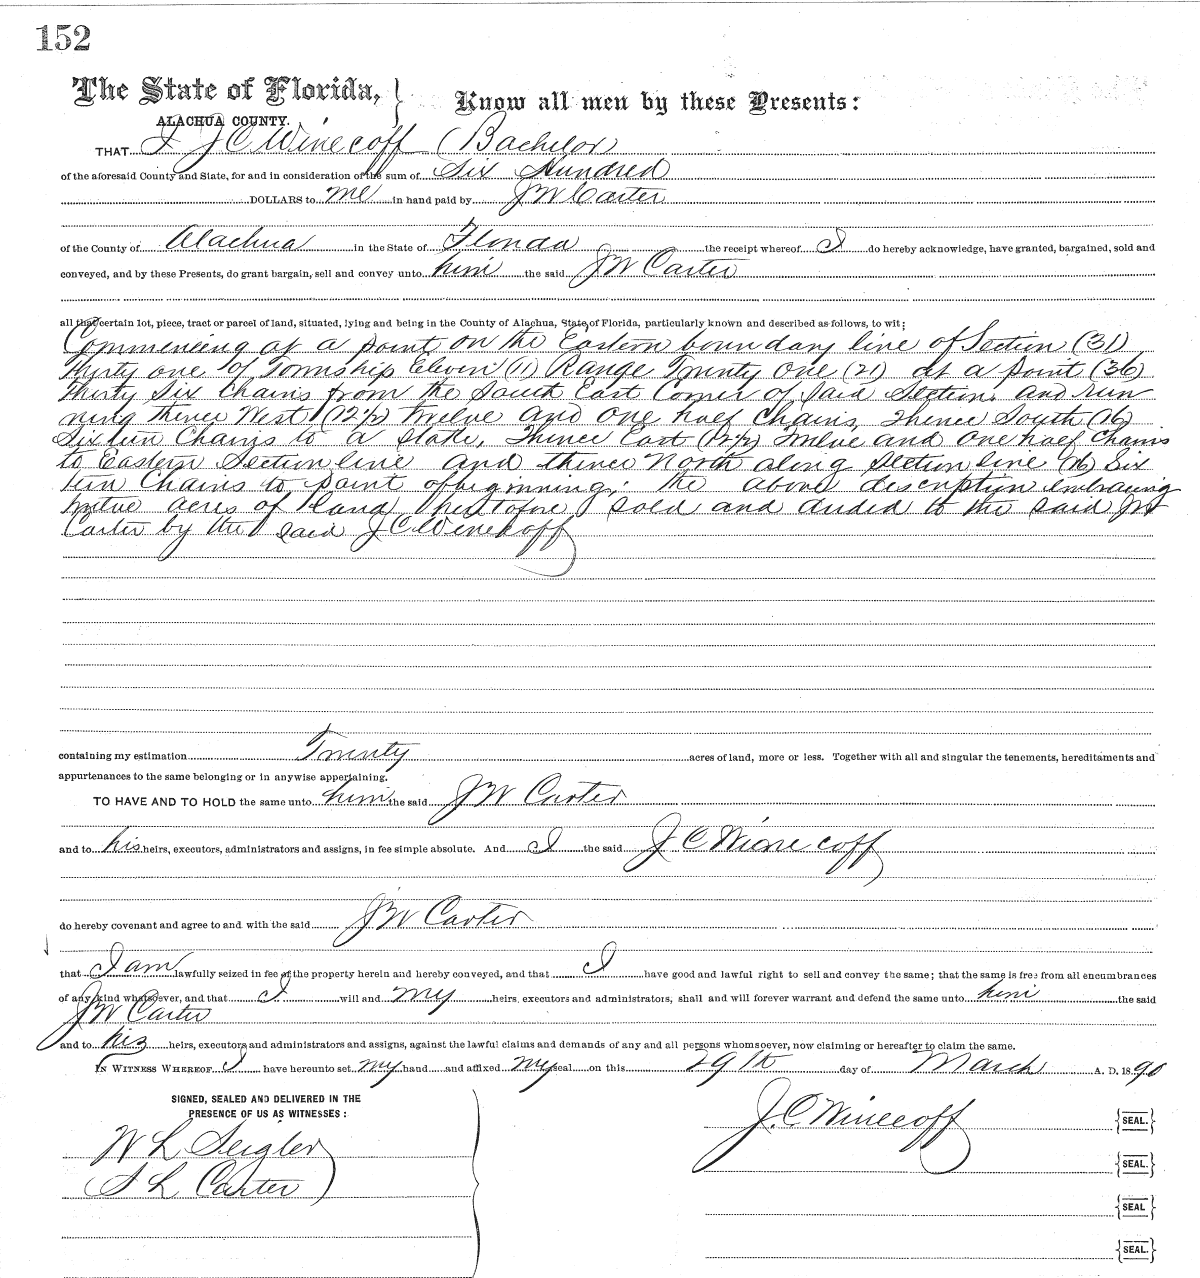 152
The State of Florida, } Know all men by these Presents:
ALACHUA COUNTY.
THAT I J C Winecoff (Bachelor
of the aforesaid County and State, for and in consideration of the sum of Six Hundred
DOLLARS to me in hand paid by J W Carter
of the County of Alachua in the State of Florida the receipt whereof I do hereby acknowledge, have granted, bargained, sold and
conveyed, and by these Presents, do grant bargain, sell and convey unto him the said J W Carter
all that certain lot, piece, tract or parcel of land, situated, lying and being in the County of Alachua, State of Florida, particularly known and described as follows, to wit:
Commencing at a point on the Eastern boundary line of Section (31)
thirty one of Township Eleven (11) Range Twenty One (21) at a point (36)
thirty Six Chains from the South East Corner of Said Section, and run
ning thence West (12½) twelve and one half Chains, Thence South (16)
Sixteen Chains to a stake, Thence East (12½) Twelve and One half Chains
to Eastern Section line and thence North along section line (16) Six
teen Chains to point of beginning; the above description embracing
twelve acres of land heretofore sold and deeded to the said JW
Carter by the said J C Winecoff
containing my estimation Twenty acres of land, more or less. Together with all and singular the tenements, hereditaments and
appurtenances to the same belonging or in anywise appertaining.
TO HAVE AND TO HOLD the same unto him the said J W Carter
and to his heirs, executors, administrators and assigns, in fee simple absolute. And I the said J C Winecoff
do hereby covenant and agree to and with the said J W Carter
that I am lawfully seized in fee of the property herein and hereby conveyed, and that I have good and lawful right to sell and convey the same; that the same is free from all encumbrances
of any kind whatsoever, and that I will and my heirs, executors and administrators, shall and will forever warrant and defend the same unto him the said
J W Carter
and to his heirs, executors and administrators and assigns, against the lawful claims and demands of any and all persons whomsoever, now claiming or hereafter to claim the same.
IN WITNESS WHEREOF I have hereunto set my hand and affixed my seal on this 29th day of March A. D. 1890
SIGNED, SEALED AND DELIVERED IN THE
PRESENCE OF US AS WITNESSES:
J. C Winecoff {SEAL.}
W L Seigler
{SEAL.}
S L Carter
{SEAL.}
{SEAL.}